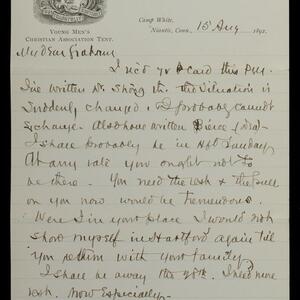 Young Men's
Christian Association Tent.
Camp White,
Niantic, Conn., 15 Aug 1892.
My Dear Graham,
I rec'd yr card this P.M.
I've written Dr. the situation is
suddenly changed & I probably cannot
exchange. Also have written
I shall probably be in Hfd Sunday
At any rate you ought not to
be there. You need the rest & the pull
on you now would be tremendous.
Were I in your place I would not
show myself in Hartford again till
you return with your family.
I shall be away the 28th. I need more
rest. Now especially-